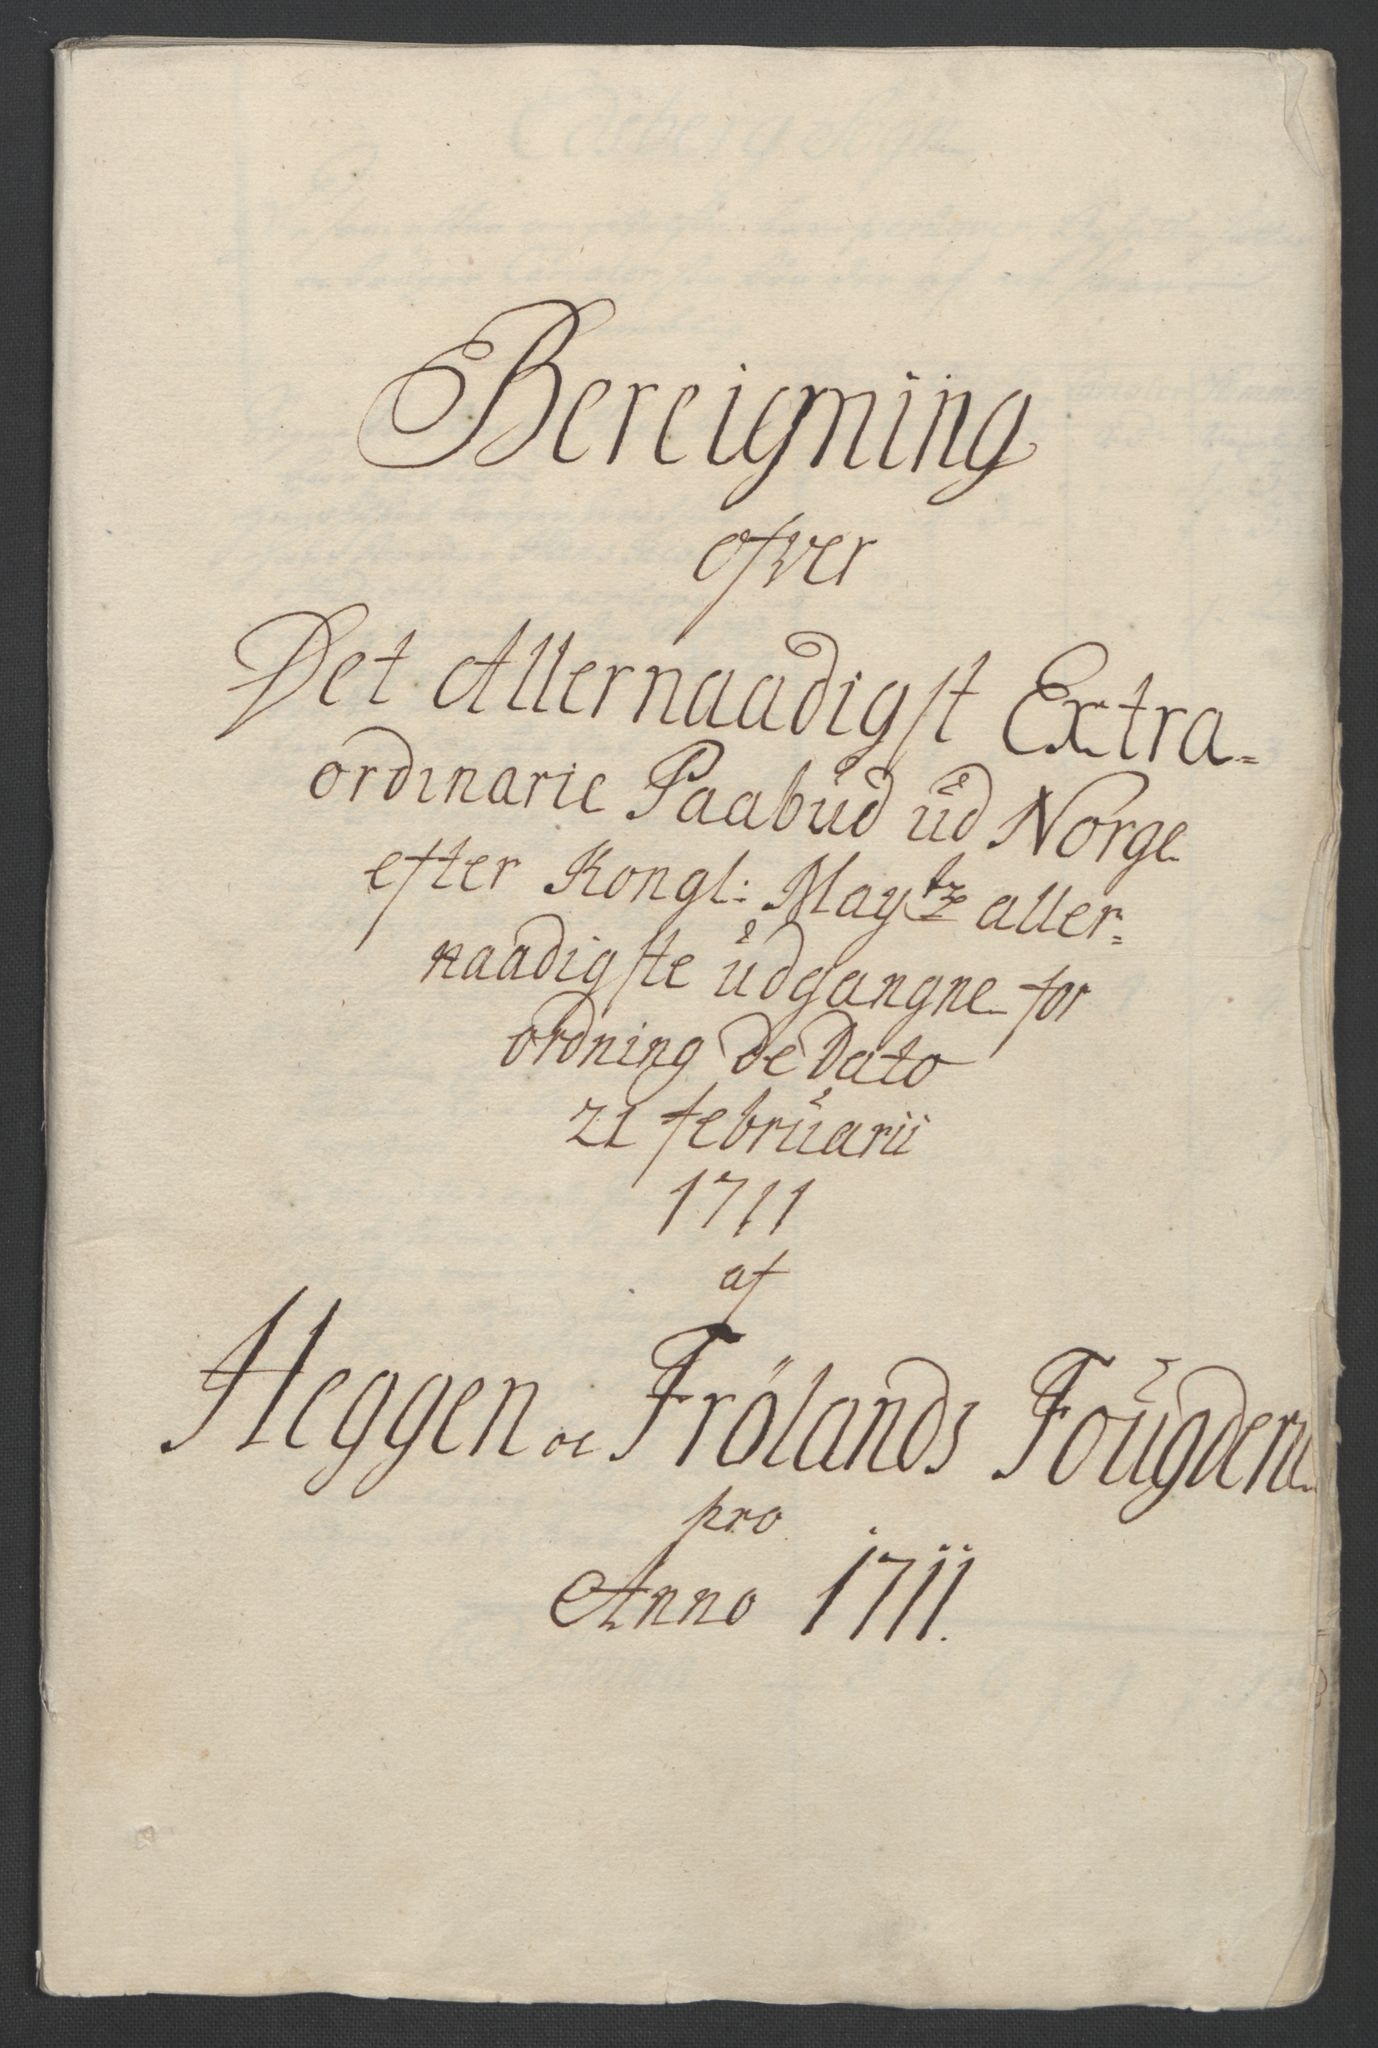 Bereigning
ofver
Det Allernaadigst Extra=
ordinarie Paabud ud Norge
efter Kongl: May^tz aller=
naadigste udgangne for
ordning de Dato
21 februarii
1711
af
Heggen oc Frölands Fougderie
pro
Anno 1711.